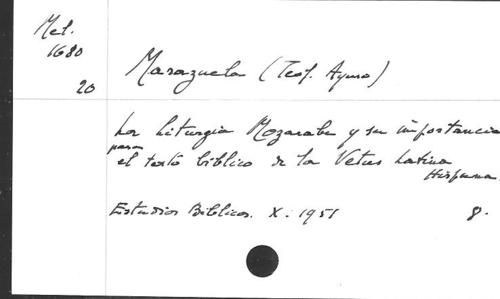 Mel.
1680
20
Marazuela (Teof. Ayuso)
La Liturgia Mozarabe y su importancia
para
el texto biblico de la Vetus Latina
Hispana.
Estudios Biblicos. X. 1951
8.